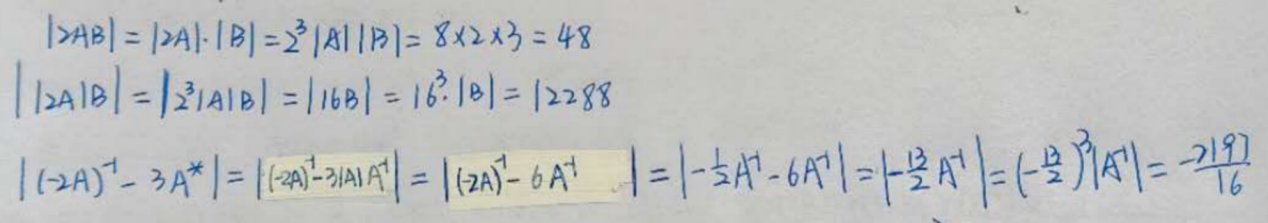 |2AB| = |2A|·|B| = 2³|A||B| = 8×2×3 = 48
||2A|B| = |2³|A|B| = |16B| = 16³·|B| = 12288
|(-2A)⁻¹ - 3A*| = |(-2A)⁻¹ - 3|A|A⁻¹| = |(-2A)⁻¹ - 6A⁻¹| = |-½A⁻¹ - 6A⁻¹| = |-13/2 A⁻¹| = (-13/2)³|A⁻¹| = -2197/16